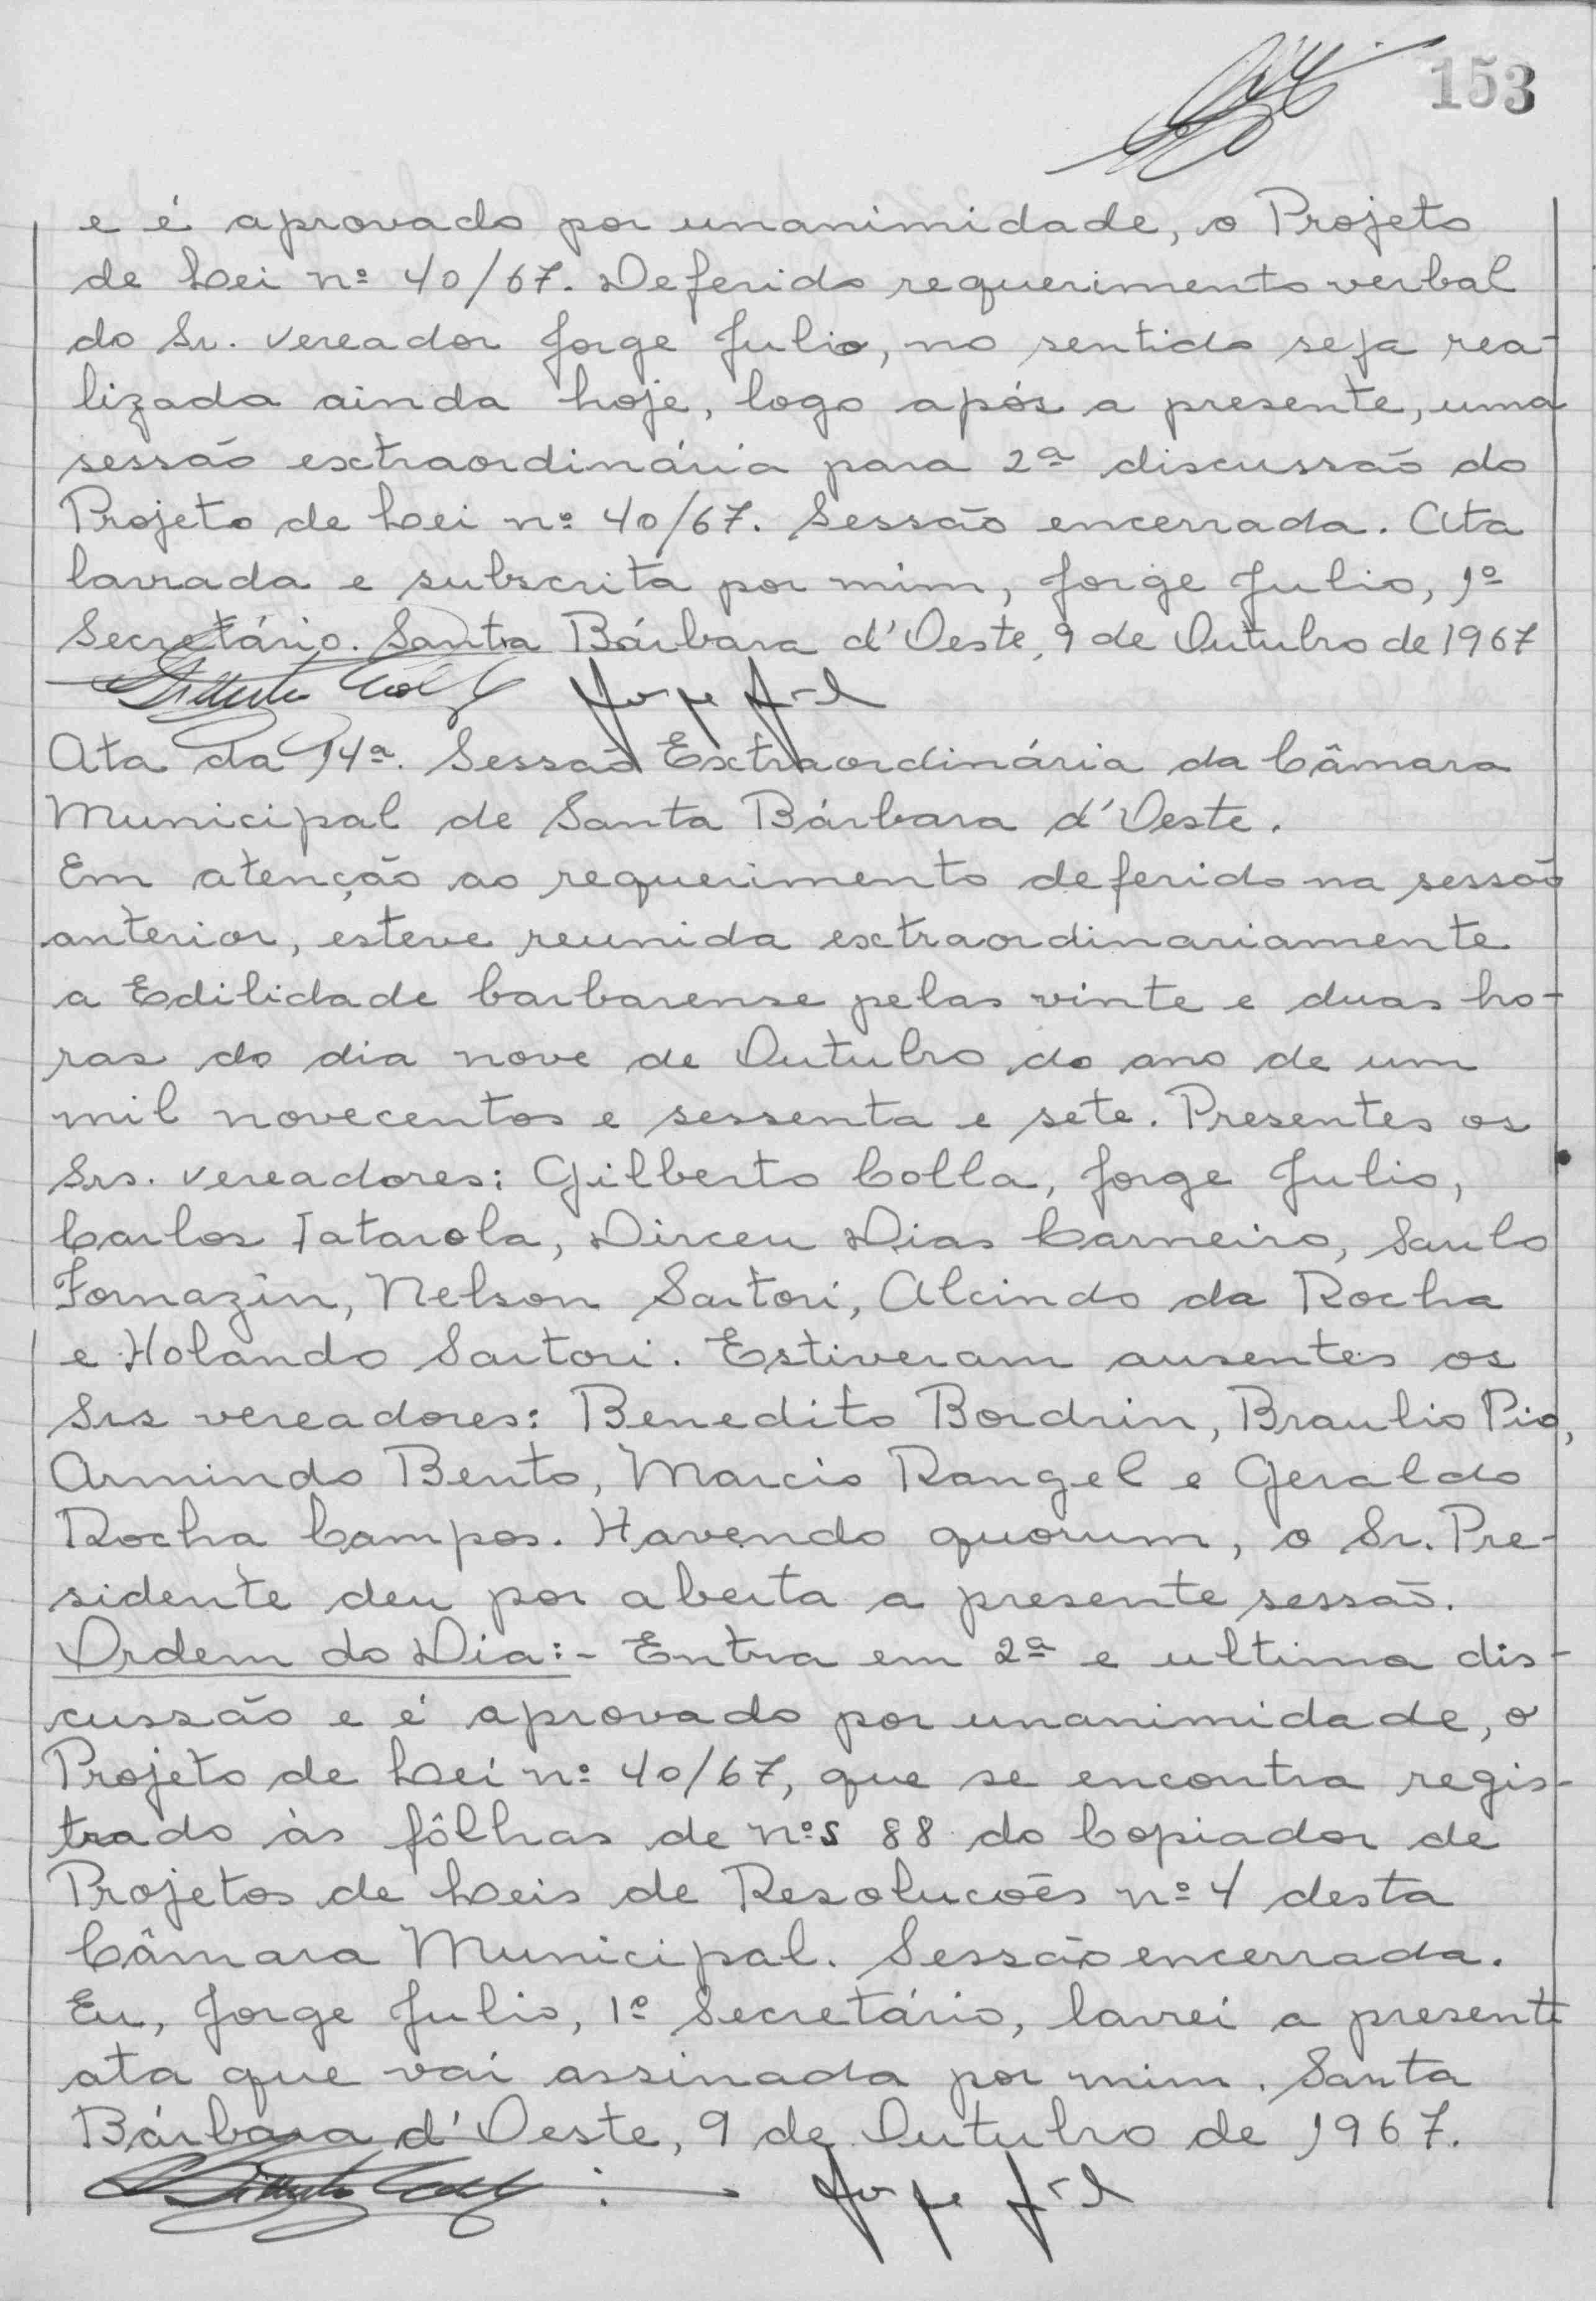 153
e é aprovado por unanimidade, o Projeto
de Lei nº 40/67. Deferido requerimento verbal
do Sr. vereador Jorge Julio, no sentido seja rea-
lizada ainda hoje, logo após a presente, uma
sessão extraordinária para 2ª discussão do
Projeto de Lei nº 40/67. Sessão encerrada. Ata
lavrada e subscrita por mim, Jorge Julio, 1º
Secretário. Santa Bárbara d'Oeste, 9 de Outubro de 1967
Ata da 14ª. Sessão Extraordinária da Câmara
Municipal de Santa Bárbara d'Oeste.
Em atenção ao requerimento deferido na sessão
anterior, esteve reunida extraordinariamente
a Edilidade barbarense pelas vinte e duas ho-
ras do dia nove de Outubro do ano de um
mil novecentos e sessenta e sete. Presentes os
Srs. vereadores: Gilberto Colla, Jorge Julio,
Carlos Tatarola, Dirceu Dias Carneiro, Saulo
Fornazin, Nelson Sartori, Alcindo da Rocha
e Holando Sartori. Estiveram ausentes os
Srs vereadores: Benedito Bordrin, Braulio Pio,
Armindo Bento, Marcio Rangel e Geraldo
Rocha Campos. Havendo quorum, o Sr. Pre-
sidente deu por aberta a presente sessão.
Ordem do Dia:- Entra em 2ª e ultima dis-
cussão e é aprovado por unanimidade, o
Projeto de Lei nº 40/67, que se encontra regis-
trado às fôlhas de nºs 88 do Copiador de
Projetos de Leis de Resolucões nº 4 desta
Câmara Municipal. Sessão encerrada.
Eu, Jorge Julio, 1º Secretário, lavrei a presente
ata que vai assinada por mim. Santa
Bárbara d'Oeste, 9 de Outubro de 1967.